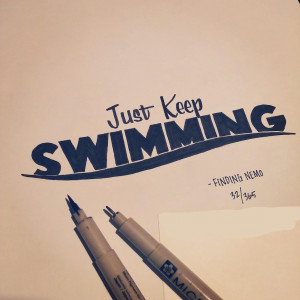 Just Keep
SWIMMING
- FINDING NEMO
32/365